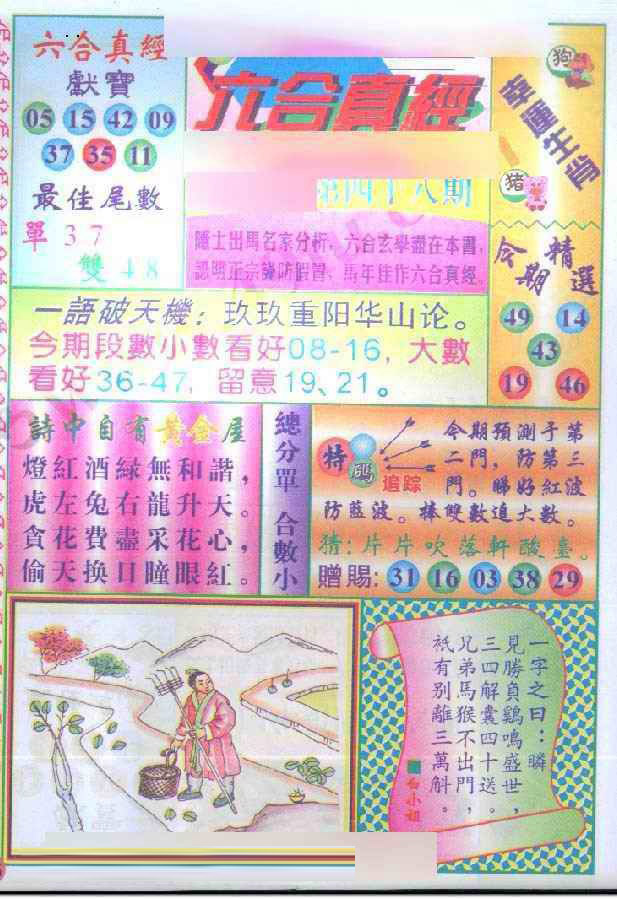 六合真經
獻寶
05 15 42 09
37 35 11
最佳尾數
單 3 7
雙 4 8
六合真經
第四十八期
隱士出馬名家分析，六合玄學盡在本書，
認明正宗謹防假冒，馬年佳作六合真經。
狗
幸運生肖
猪
今期精選
49 14
43
19 46
一語破天機：玖玖重阳华山论。
今期段數小數看好08-16，大數
看好36-47，留意19、21。
詩中自有黃金屋
燈紅酒綠無和諧，
虎左兔右龍升天。
貪花費盡采花心，
偷天换日瞳眼紅。
總分單 合數小
特碼
追踪
今期預測于第
二門，防第三
門。睇好紅波
防藍波。棒雙數追大數。
猜：片片吹落軒酸臺。
贈賜：31 16 03 38 29
一字之曰：瞬
見勝負鷄鳴盛世，
三四解囊四十送。
兄弟馬猴不出門，
衹有别離三萬斛。
白小姐